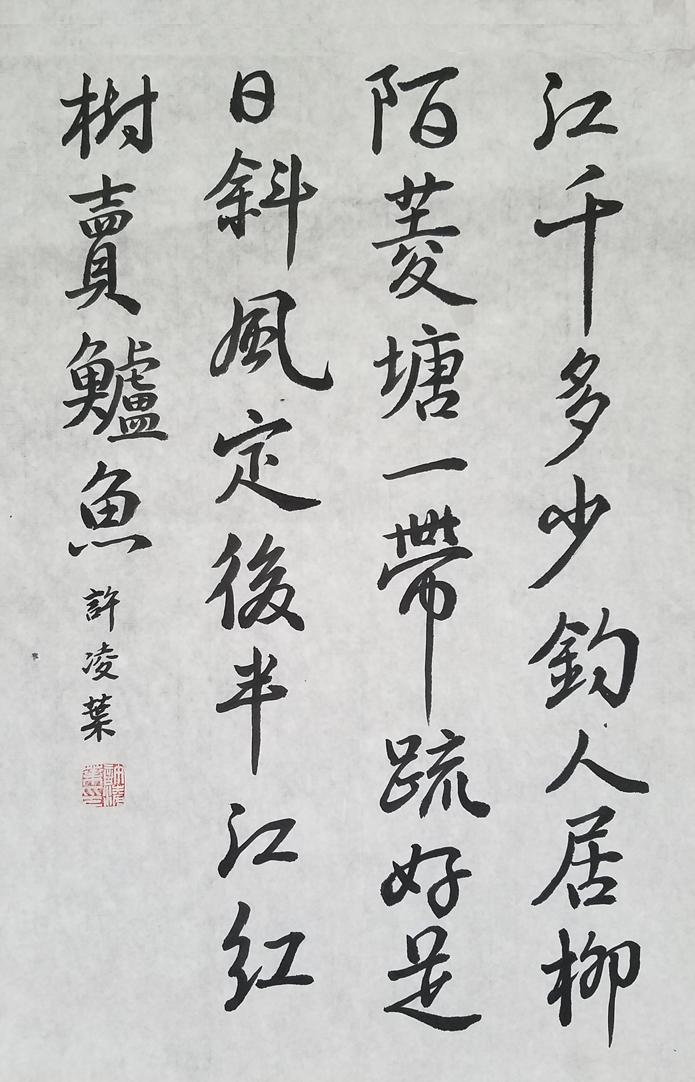 江千多少釣人居柳
陌菱塘一帶疏好是
日斜風定後半江紅
樹賣鱸魚
許凌葉